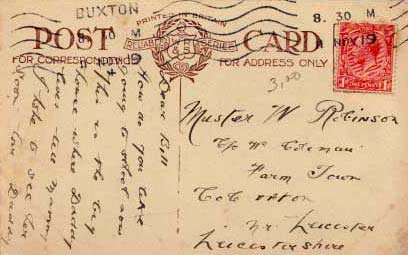 BUXTON
8. 30 M
NOV 19
PRINTED IN BRITAIN
POST CARD
RELIABLE SERIES
FOR CORRESPONDENCE
FOR ADDRESS ONLY
3,00
Dear Bill
How do you like
going to school now
This is the big
house where Daddy
live
I like to see her
from her Daddy
Master W Robinson
c/o Mr Coleman
Farm Town
Coleorton
Nr Leicester
Leicestershire